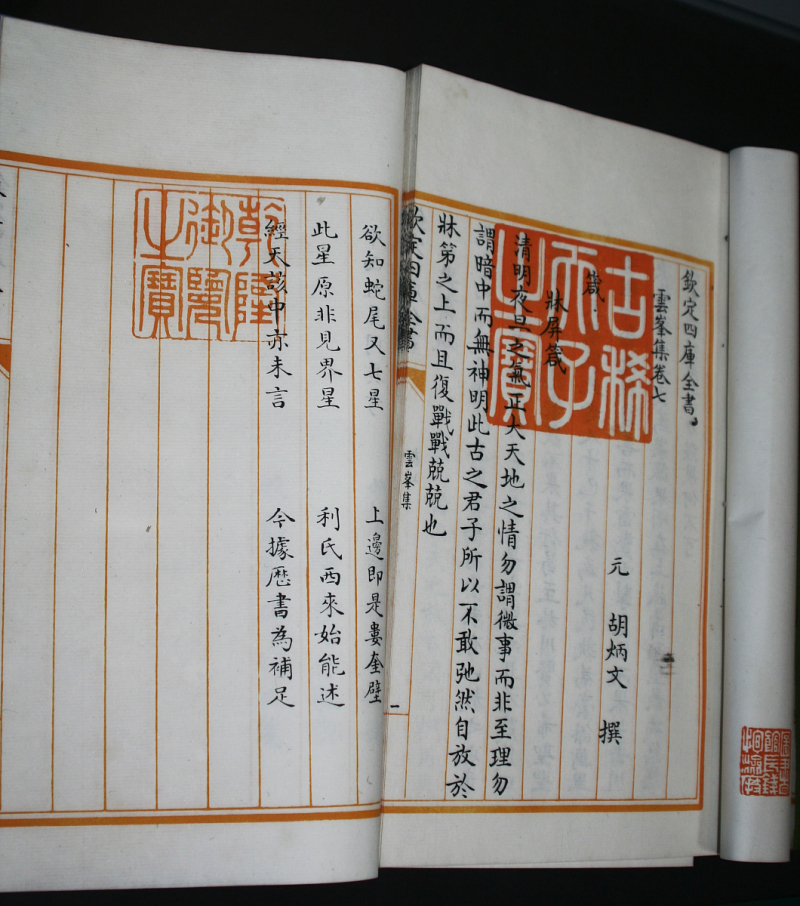 欽定四庫全書
雲峯集卷七
元 胡炳文 撰
箴
牀屏箴
清明夜旦之氣正大天地之情勿謂微事而非至理勿
謂暗中而無神明此古之君子所以不敢弛然自放於
牀第之上而且復戰戰兢兢也
古稀天子之寶
欽定四庫全書
雲峯集
一
欲知蛇尾又七星 上邊即是婁奎壁
此星原非見界星 利氏西來始能述
經天該中亦未言 今據歷書為補足
乾隆御覽之寶